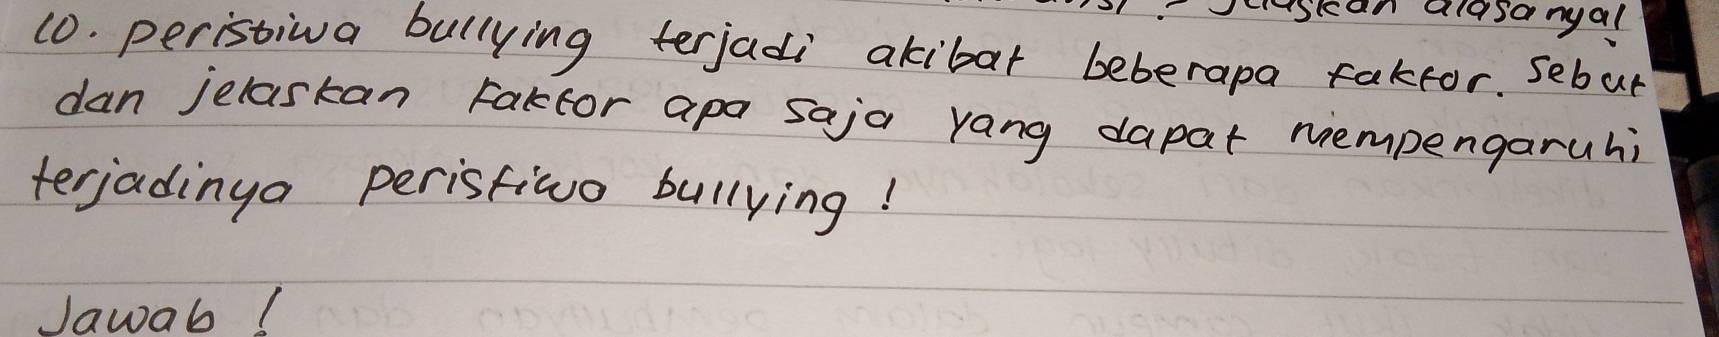 Jelaskan alasanya!
10. peristiwa bullying terjadi akibat beberapa faktor. sebut
dan jelaskan faktor apa saja yang dapat mempengaruhi
terjadinya peristiwa bullying!
Jawab!